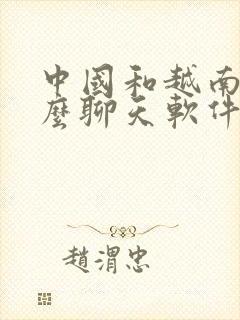 中國和越南
麼聊天軟件
趙渭忠